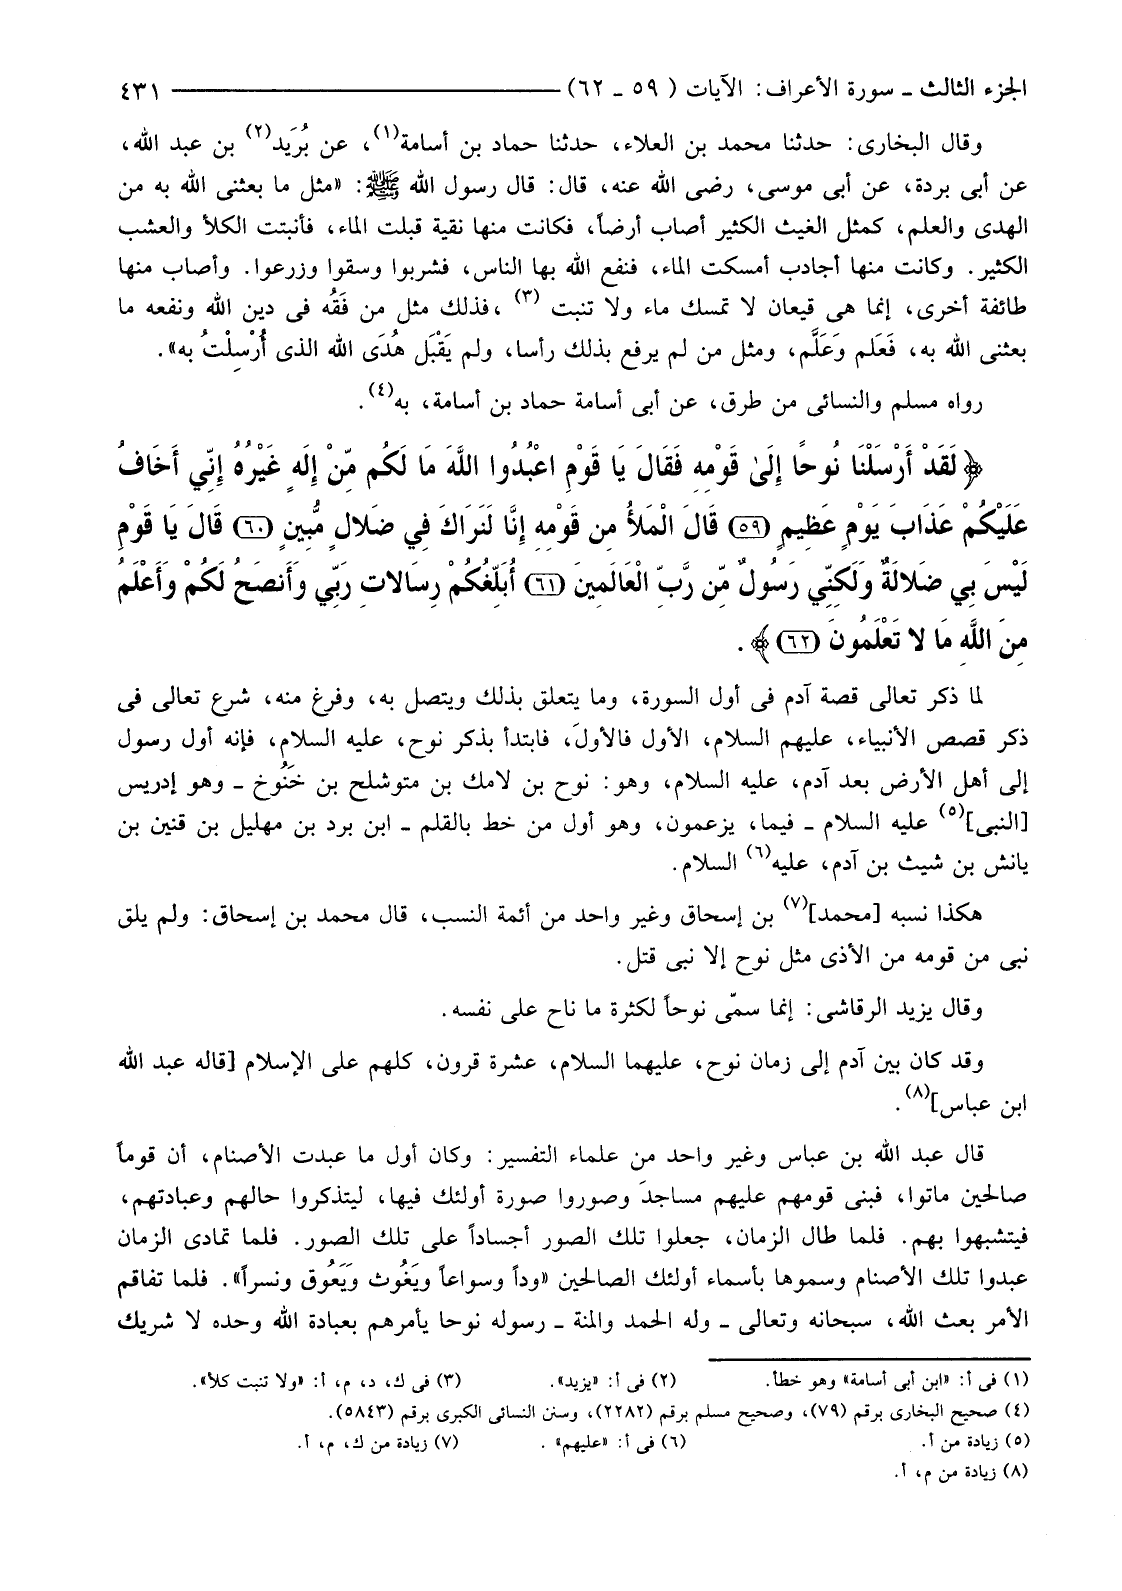 الجزء الثالث ـ سورة الأعراف: الآيات ( ٥٩ ـ ٦٢) ٤٣١
وقال البخارى: حدثنا محمد بن العلاء، حدثنا حماد بن أسامة(١)، عن بُرَيد(٢) بن عبد الله،
عن أبى بردة، عن أبى موسى، رضى الله عنه، قال: قال رسول الله ﷺ: «مثل ما بعثنى الله به من
الهدى والعلم، كمثل الغيث الكثير أصاب أرضاً، فكانت منها نقية قبلت الماء، فأنبتت الكلأ والعشب
الكثير. وكانت منها أجادب أمسكت الماء، فنفع الله بها الناس، فشربوا وسقوا وزرعوا. وأصاب منها
طائفة أخرى، إنما هى قيعان لا تمسك ماء ولا تنبت (٣) ،فذلك مثل من فَقُه فى دين الله ونفعه ما
بعثنى الله به، فَعَلم وَعَلَّم، ومثل من لم يرفع بذلك رأسا، ولم يَقْبَل هُدَى الله الذى أُرْسِلْتُ به».
رواه مسلم والنسائى من طرق، عن أبى أسامة حماد بن أسامة، به(٤).
﴿ لَقَدْ أَرْسَلْنَا نُوحًا إِلَىٰ قَوْمِهِ فَقَالَ يَا قَوْمِ اعْبُدُوا اللَّهَ مَا لَكُم مِّنْ إِلَهٍ غَيْرُهُ إِنِّي أَخَافُ
عَلَيْكُمْ عَذَابَ يَوْمٍ عَظِيمٍ (٥٩) قَالَ الْمَلأُ مِن قَوْمِهِ إِنَّا لَنَرَاكَ فِي ضَلالٍ مُّبِينٍ (٦٠) قَالَ يَا قَوْمِ
لَيْسَ بِي ضَلالَةٌ وَلَكِنِّي رَسُولٌ مِّن رَّبِّ الْعَالَمِينَ (٦١) أُبَلِّغُكُمْ رِسَالاتِ رَبِّي وَأَنصَحُ لَكُمْ وَأَعْلَمُ
مِنَ اللَّهِ مَا لا تَعْلَمُونَ (٦٢) ﴾ .
لما ذكر تعالى قصة آدم فى أول السورة، وما يتعلق بذلك ويتصل به، وفرغ منه، شرع تعالى فى
ذكر قصص الأنبياء، عليهم السلام، الأول فالأولَ، فابتدأ بذكر نوح، عليه السلام، فإنه أول رسول
إلى أهل الأرض بعد آدم، عليه السلام، وهو: نوح بن لامك بن متوشلح بن خَنُوخ ـ وهو إدريس
[النبى](٥) عليه السلام ـ فيما، يزعمون، وهو أول من خط بالقلم ـ ابن برد بن مهليل بن قنين بن
يانش بن شيث بن آدم، عليه(٦) السلام.
هكذا نسبه [محمد](٧) بن إسحاق وغير واحد من أئمة النسب، قال محمد بن إسحاق: ولم يلق
نبى من قومه من الأذى مثل نوح إلا نبى قتل.
وقال يزيد الرقاشى: إنما سمّى نوحاً لكثرة ما ناح على نفسه.
وقد كان بين آدم إلى زمان نوح، عليهما السلام، عشرة قرون، كلهم على الإسلام [قاله عبد الله
ابن عباس](٨).
قال عبد الله بن عباس وغير واحد من علماء التفسير: وكان أول ما عبدت الأصنام، أن قوماً
صالحين ماتوا، فبنى قومهم عليهم مساجدَ وصوروا صورة أولئك فيها، ليتذكروا حالهم وعبادتهم،
فيتشبهوا بهم. فلما طال الزمان، جعلوا تلك الصور أجساداً على تلك الصور. فلما تمادى الزمان
عبدوا تلك الأصنام وسموها بأسماء أولئك الصالحين «وداً وسواعاً ويَغُوث ويَعُوق ونسراً». فلما تفاقم
الأمر بعث الله، سبحانه وتعالى ـ وله الحمد والمنة ـ رسوله نوحا يأمرهم بعبادة الله وحده لا شريك
(١) فى أ: «ابن أبى أسامة» وهو خطأ. (٢) فى أ: «يزيد». (٣) فى ك، د، م، أ: «ولا تنبت كلأ».
(٤) صحيح البخارى برقم (٧٩)، وصحيح مسلم برقم (٢٢٨٢)، وسنن النسائى الكبرى برقم (٥٨٤٣).
(٥) زيادة من أ. (٦) فى أ: «عليهم» . (٧) زيادة من ك، م، أ.
(٨) زيادة من م، أ.